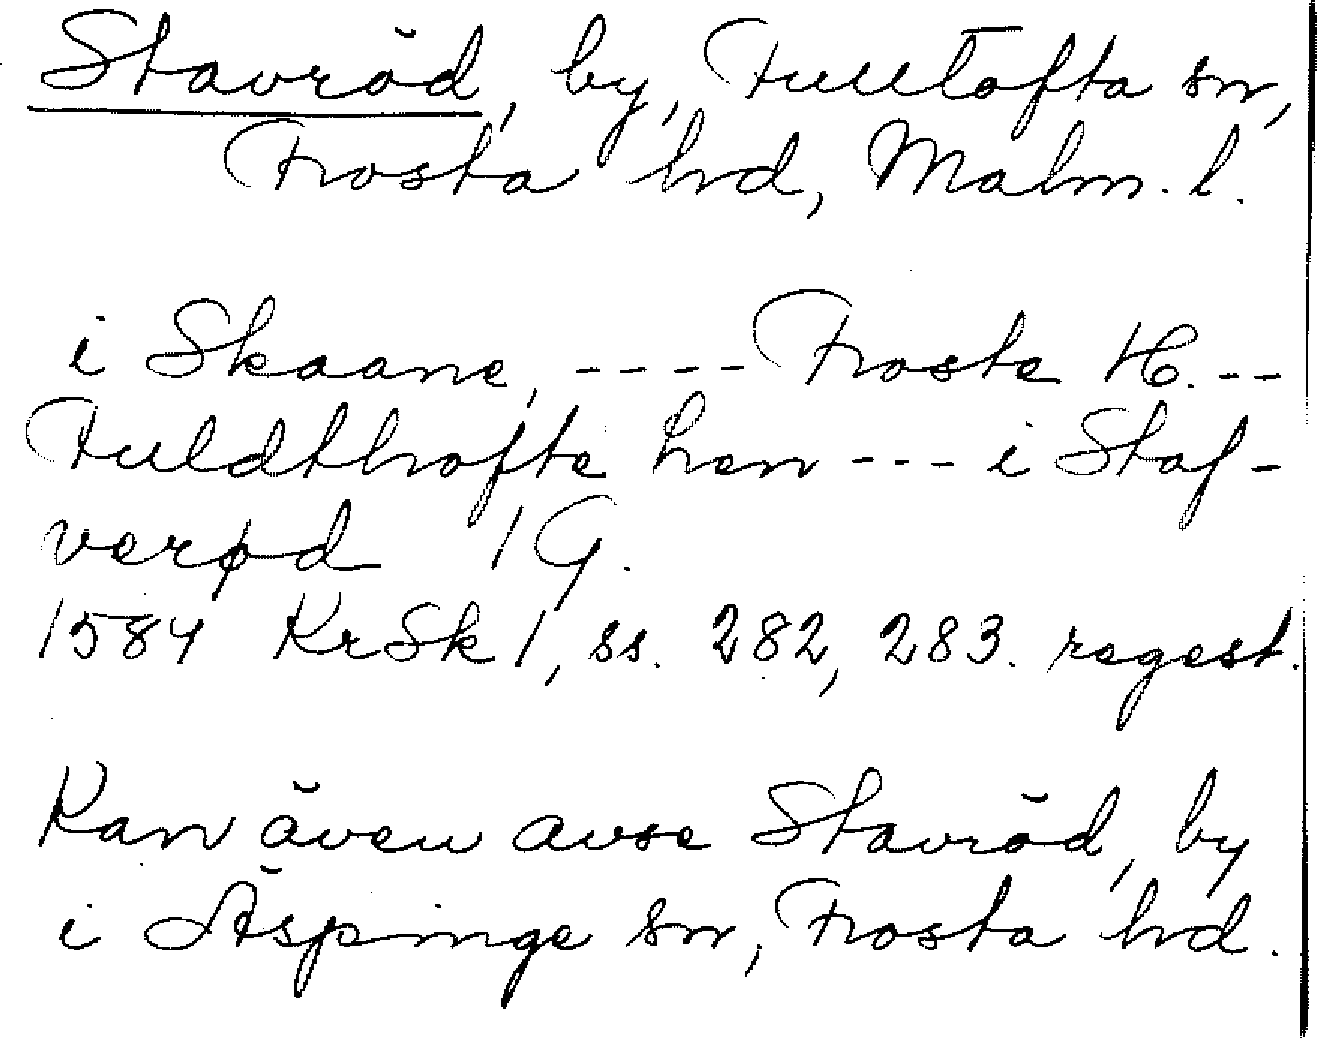 Stavröd, by, Fulltofta sn,
Frosta hd, Malm. l.
i Skaane, ---- Froste H. --
Fuldthofte Len --- i Staf-
verød 1 G.
1584 KrSk 1, ss. 282, 283. regest.
Kan även avse Stavröd, by
i Äspinge sn, Frosta hd.